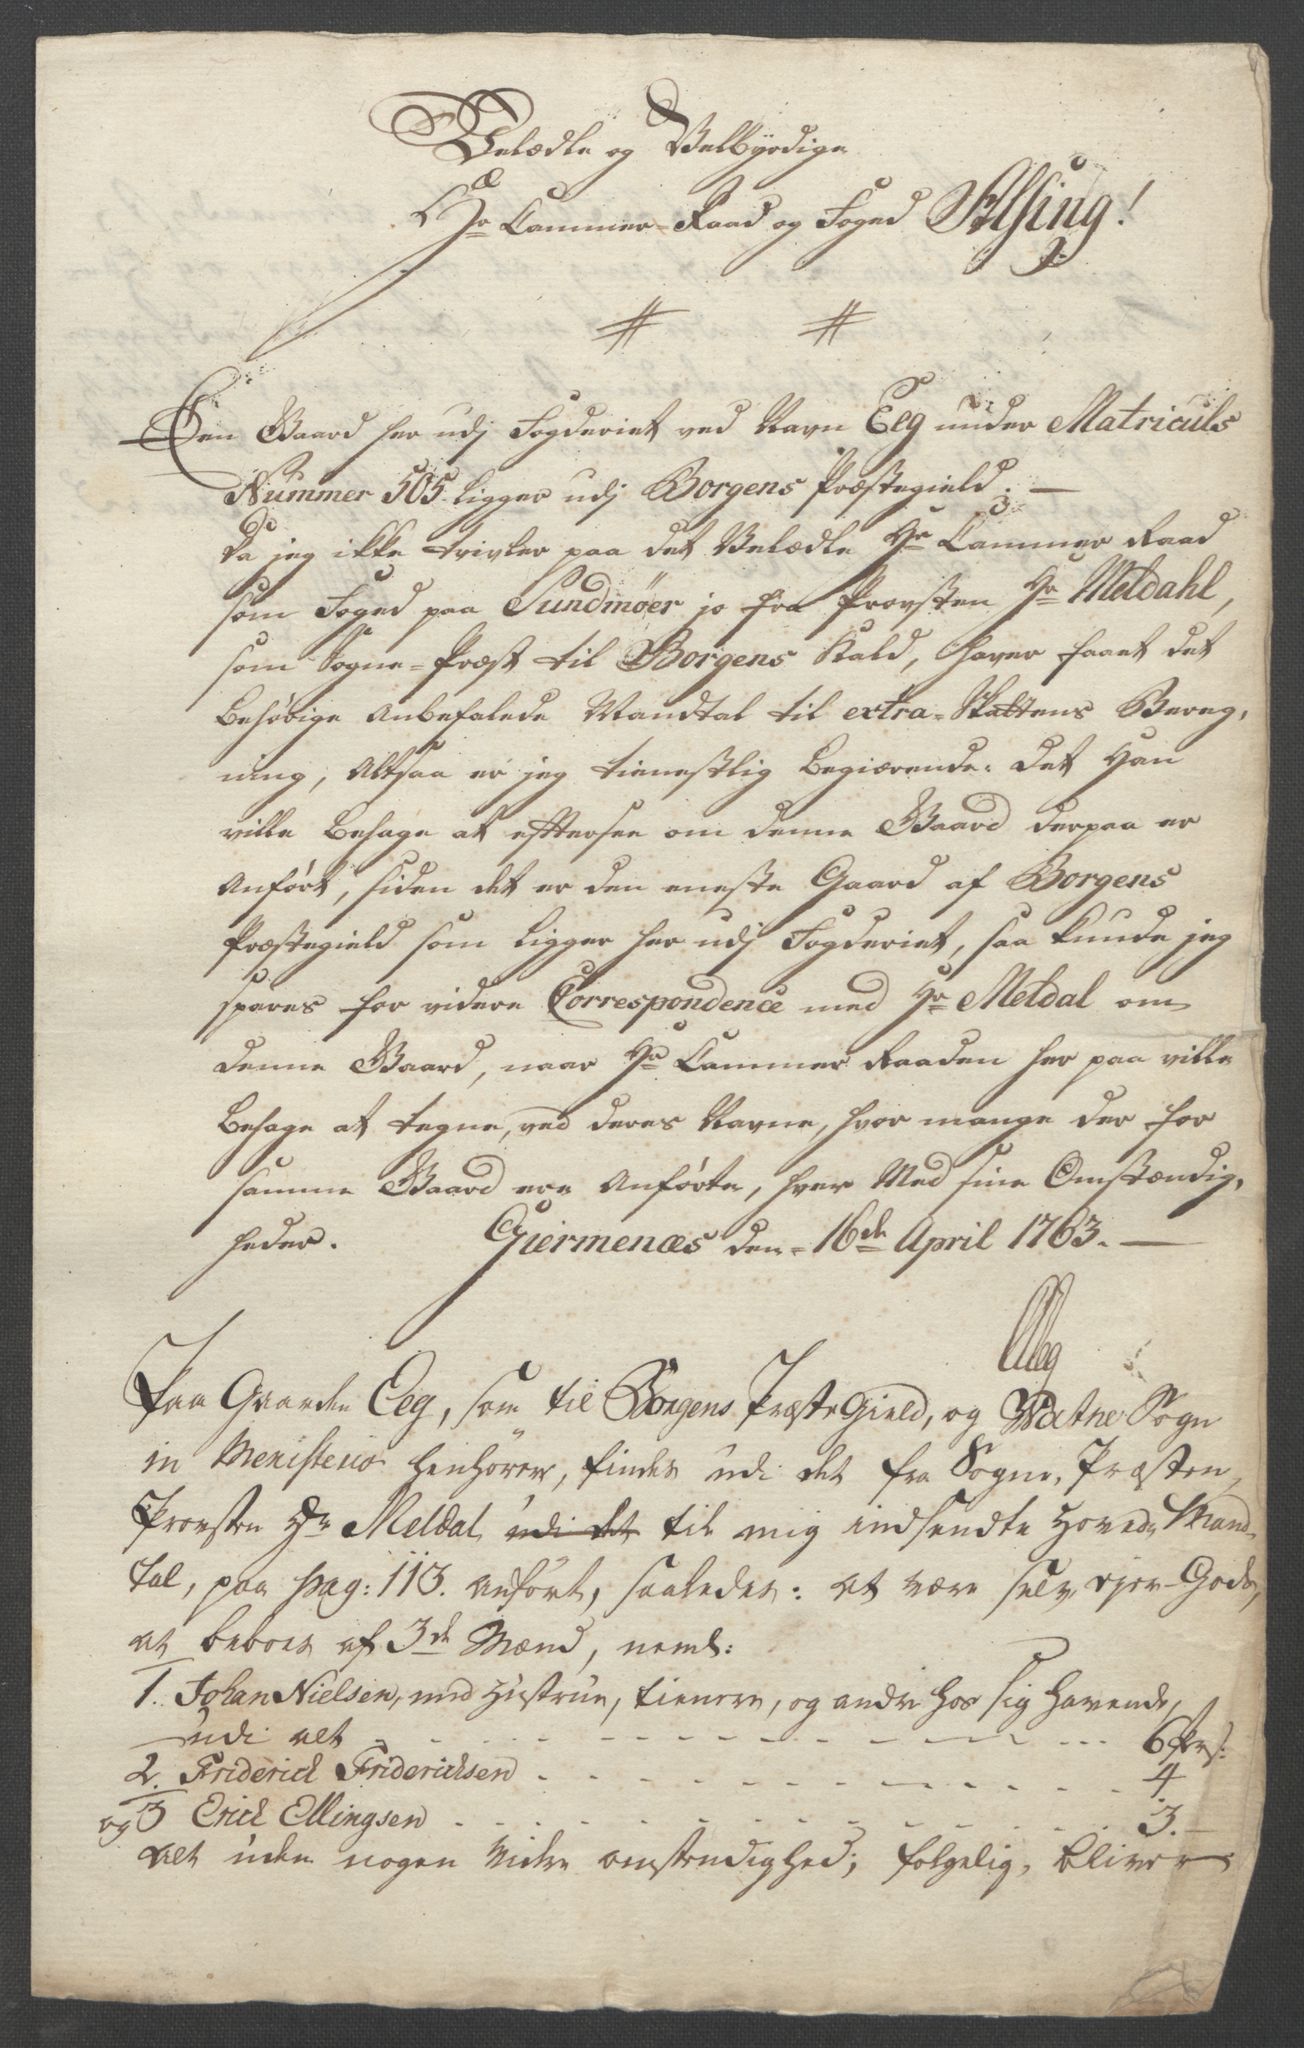 Velædle og Velbyrdige
Hr Cammer-Raad og Foged Alsing!
Den Gaard her udj Fogderiet ved Navn Eeg under Matriculs
Nummer 505 ligger udj Borgens Præstegield. —
Da jeg ikke tvivler paa det Velædle Hr Cammer Raad
som Foged paa Sundmøer jo fra Provsten Hr Meldahl,
som Sogne-Præst til Borgens Kald, haver faaet det
behørige anbefalede Mandtal til extra-Skattens Bereg,
ning, altsaa er jeg tienestlig begiærende: det Han
ville behage at efttersee om denne Gaard derpaa er
anført, siden det er den eneste Gaard af Borgens
Præstegield som ligger her udj Fogderiet, saa kunde jeg
spares for videre Correspondence med Hr Meldal om
denne Gaard, naar Hr Cammer Raaden her paa ville
behage at tegne, ved deres Navne, hvor mange der for
samme Gaard ere anførte, hver Med sine Omstændig,
heder. Giermenæs den = 16de April 1763. —
Paa Gaarden Eeg, som til Borgens Præste Gield, og Watne Sogn
in Menisterio henhører, findes udi det fra Sogne, Præsten
Provsten Hr Meldal udi det til mig indsendte Hoved, Mand-
tal, paa pag: 113. anført, saaledes: at være selv, ejer-Gods,
at beboes af 3de Mænd, neml:
1. Johan Nielsen, med Hustrue, tienere, og andre hos sig havende,
udi alt - - - 6 Pers:
2. Friderick Fridericksen - - - 4
og 3 Erick Ellingsen - - - 3. -
alt uden nogen videre omstendighed; følgelig, bliver